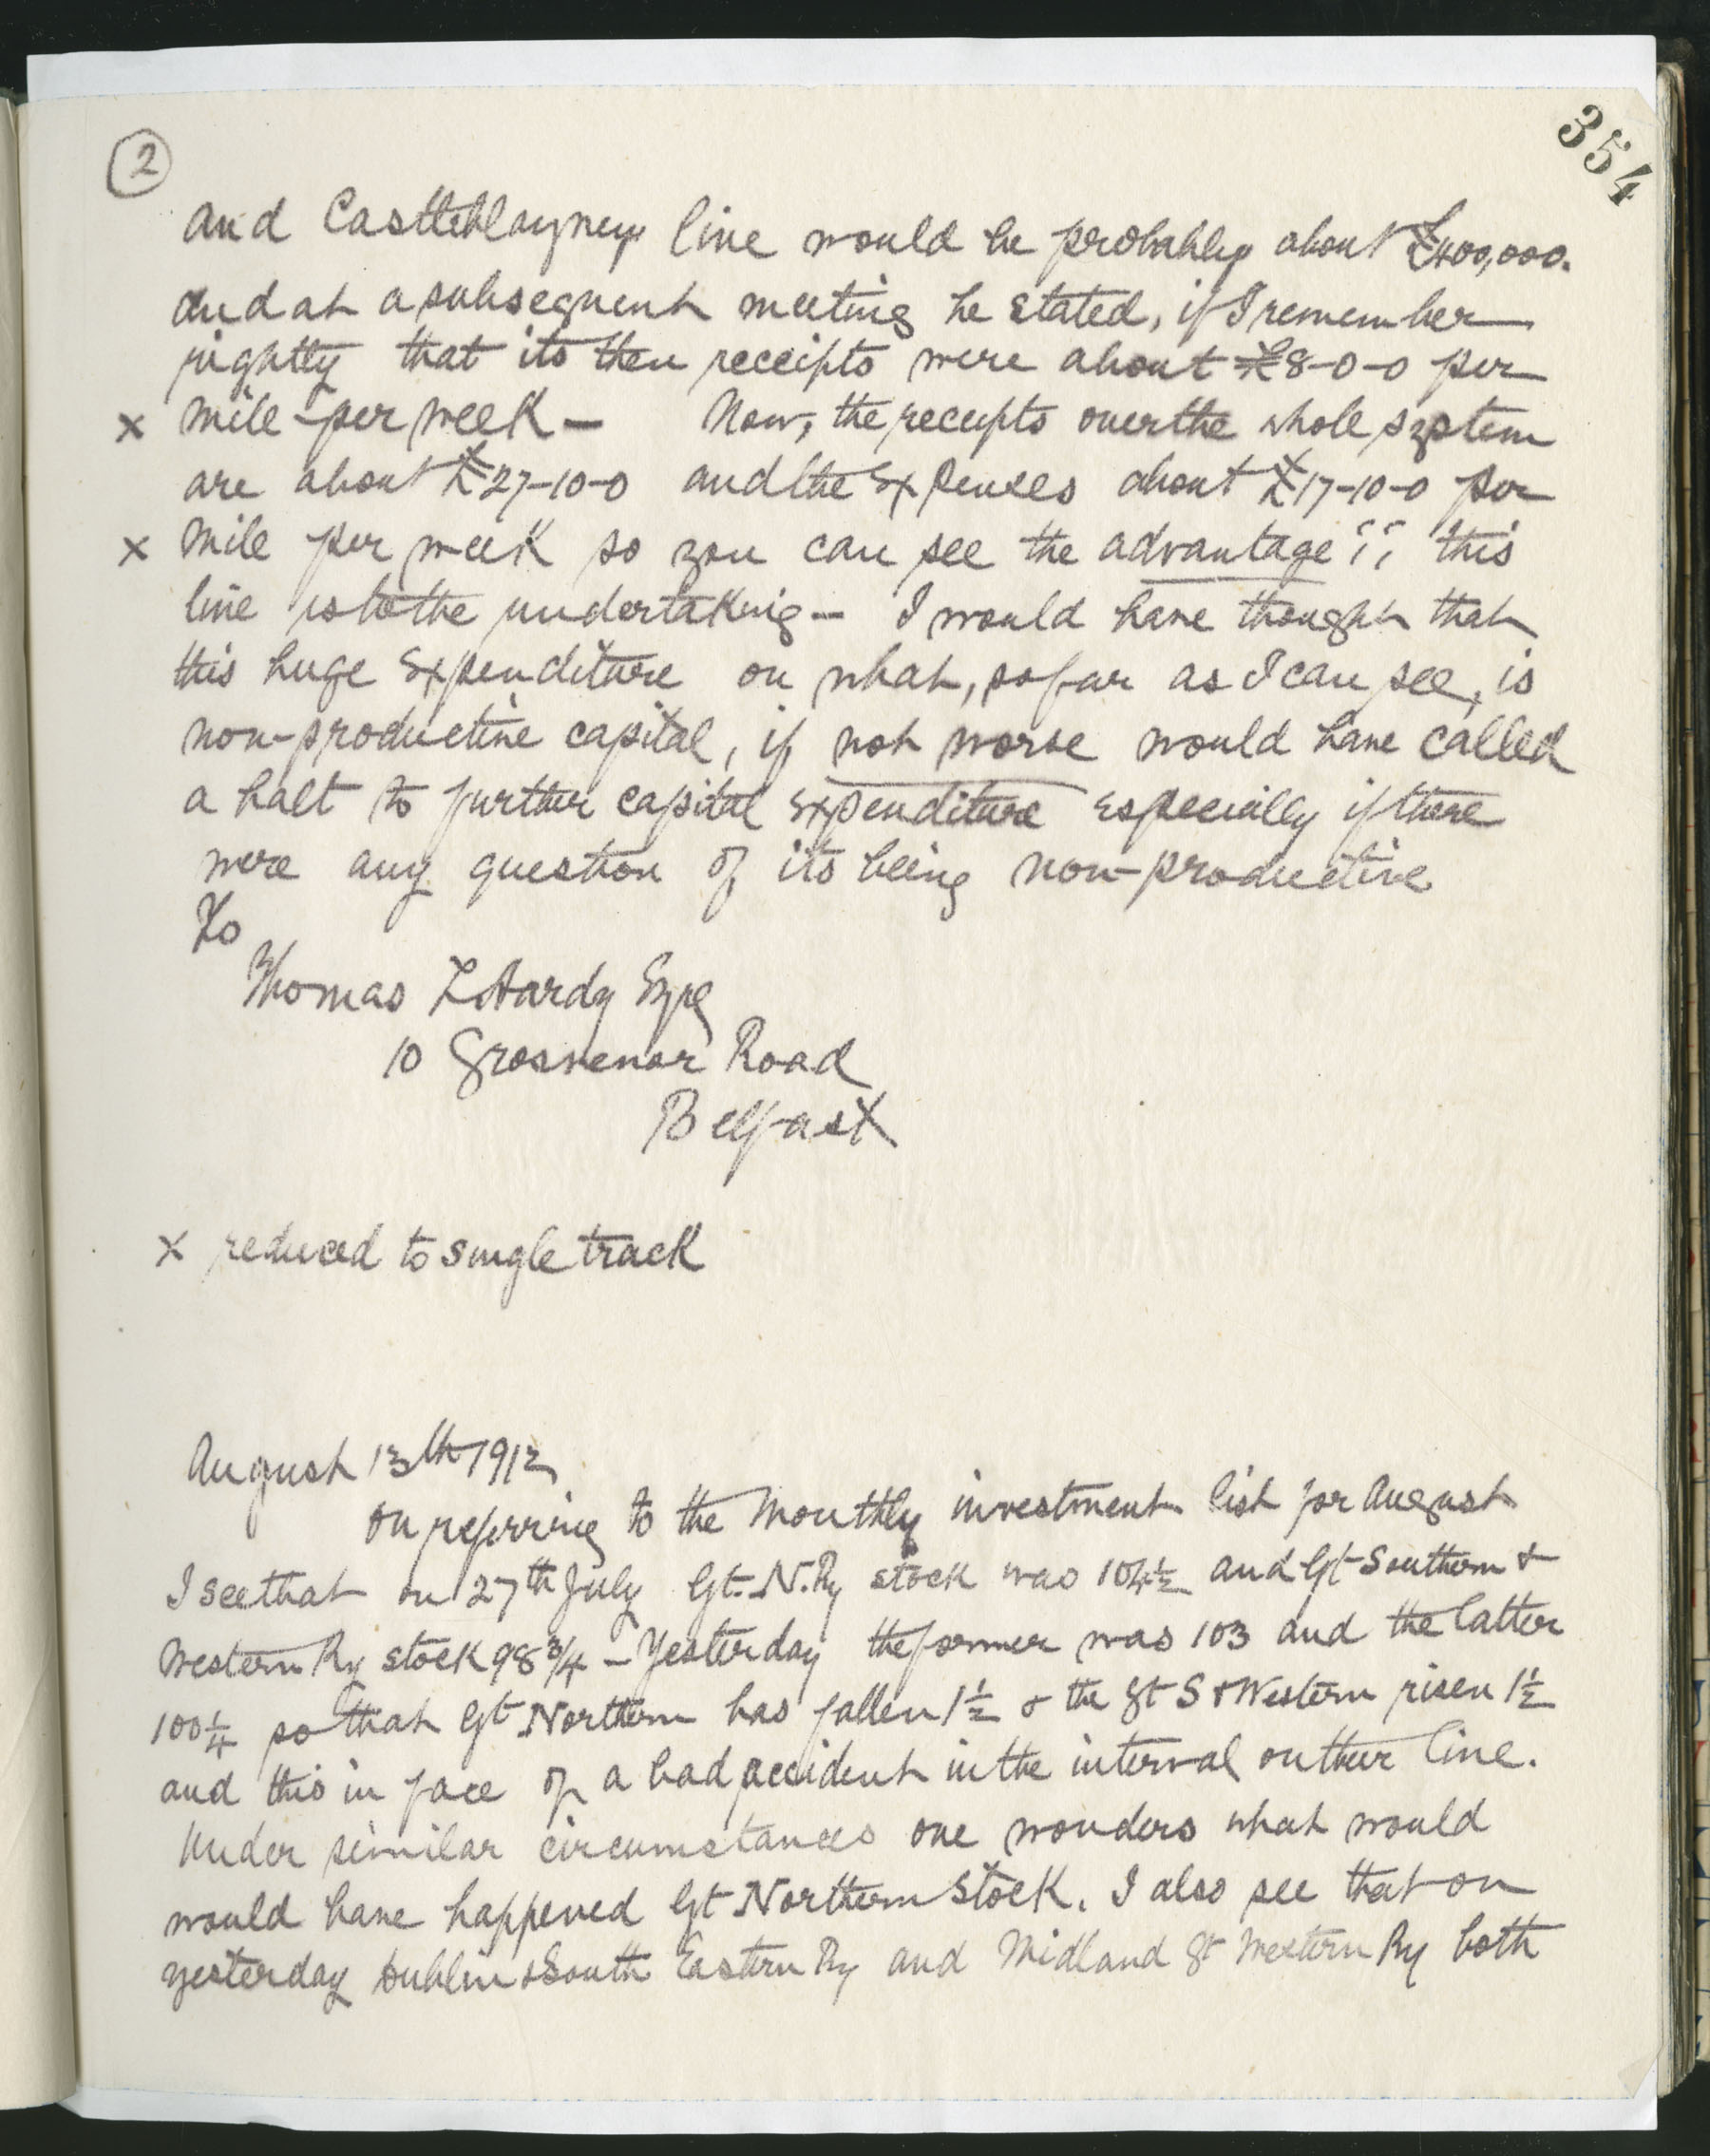 2
354
and Castleblayney line would be probably about £400,000.
And at a subsequent meeting he stated, if I remember
rightly that its then receipts were about £8-0-0 per
x mile per week — Now, the receipts over the whole system
are about £27-10-0 and the Expenses about £17-10-0 per
x mile per week so you can see the advantage !! this
line is to the undertaking — I would have thought that
this huge Expenditure on what, so far as I can see, is
non-productive capital, if not worse would have called
a halt to further capital expenditure especially if there
were any question of its being non-productive
To
Thomas Hardy Esqre
10 Grosvenor Road
Belfast
x reduced to single track
August 13th 1912
On referring to the Monthly investment list for August
I see that on 27th July Gt. N. Ry stock was 104½ and Gt Southern &
Western Ry stock 98¾ — Yesterday the former was 103 and the latter
100¼ so that Gt Northern has fallen 1½ & the Gt S & Western risen 1½
and this in face of a bad accident in the interval on their line.
Under similar circumstances one wonders what would
would have happened Gt Northern Stock. I also see that on
yesterday Dublin & South Eastern Ry and Midland Gt Western Ry both